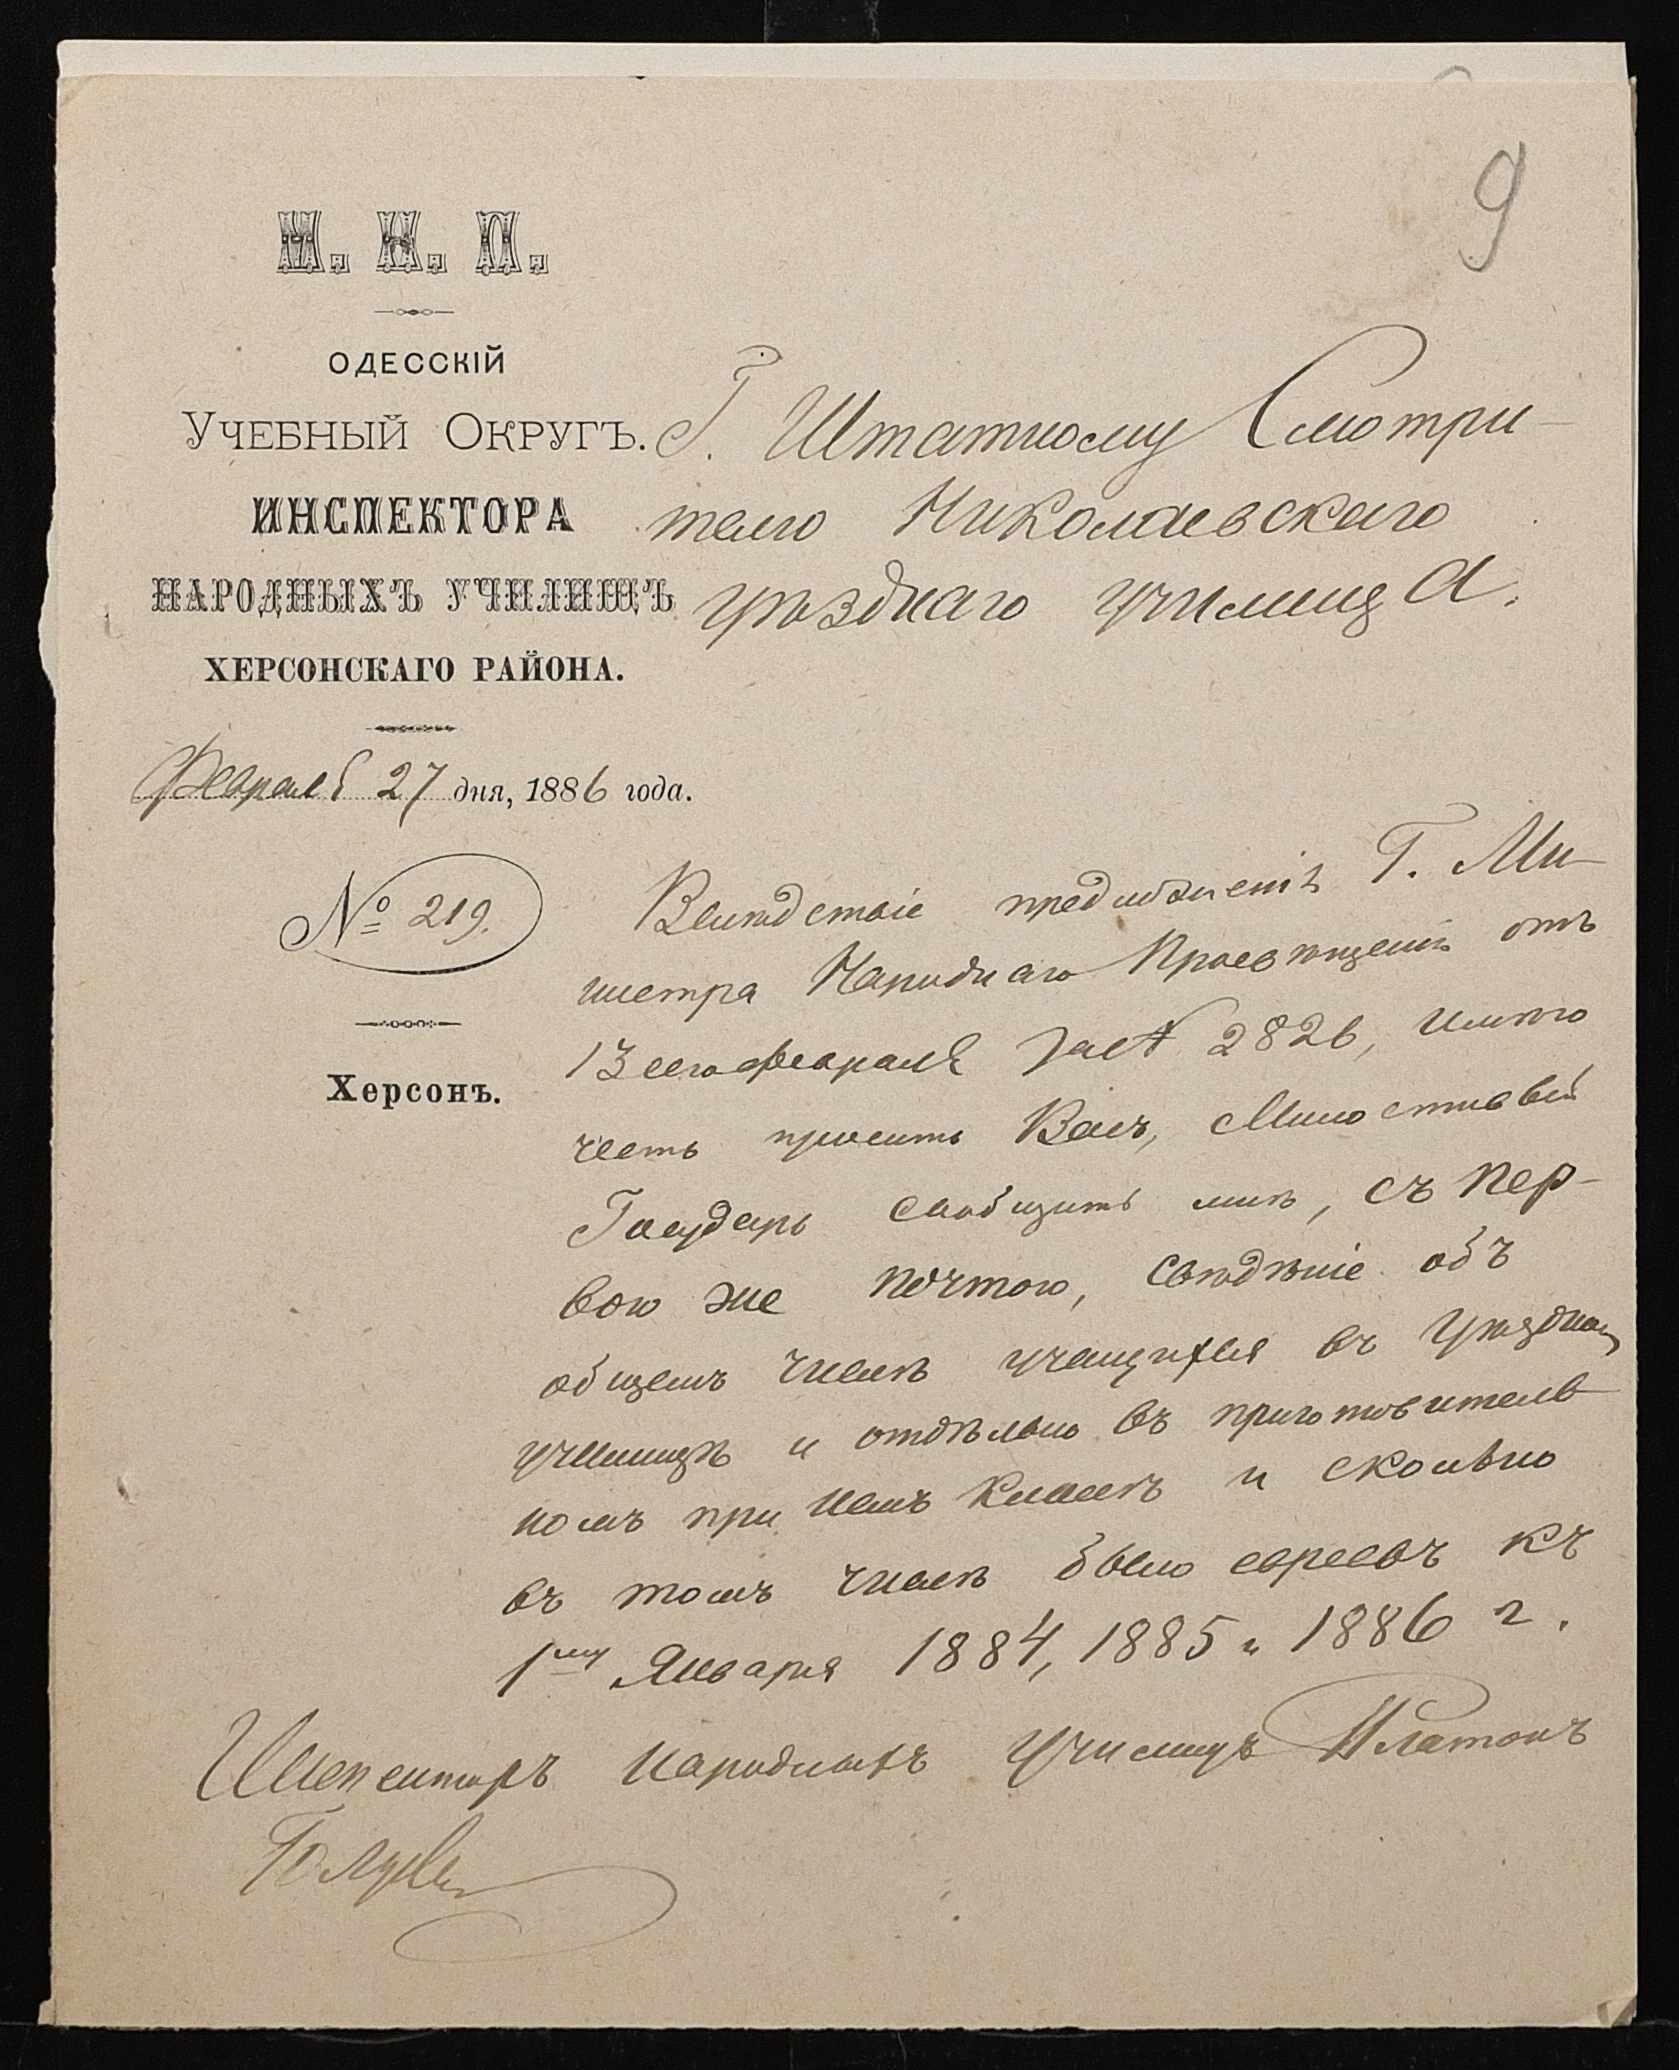 9
М. Н. П.
ОДЕССКІЙ
УЧЕБНЫЙ ОКРУГЪ.
ИНСПЕКТОРА
НАРОДНЫХЪ УЧИЛИЩЪ
ХЕРСОНСКАГО РАЙОНА.
Февраля 27 дня, 1886 года.
№ 219.
Херсонъ.
Г. Штатному Смотри-
телю Николаевскаго
уѣзднаго училища.
Вслѣдствіе предложенія Г. Ми-
нистра Народнаго Просвѣщенія отъ
13 сего Февраля за № 2826, имѣю
честь просить Васъ, Милостивый
Государь сообщить мнѣ, съ пер-
вою же почтою, свѣдѣніе объ
общемъ числѣ учащихся въ Уѣздном
училищѣ и отдѣльно въ приготовитель
номъ при немъ классѣ и сколько
въ томъ числѣ было евреевъ къ
1му Января 1884, 1885 и 1886 г.
Инспекторъ народныхъ училищъ Платонъ